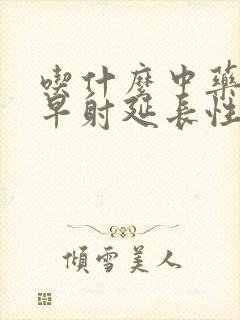 喫什麼中藥
早射延長性
傾雪美人